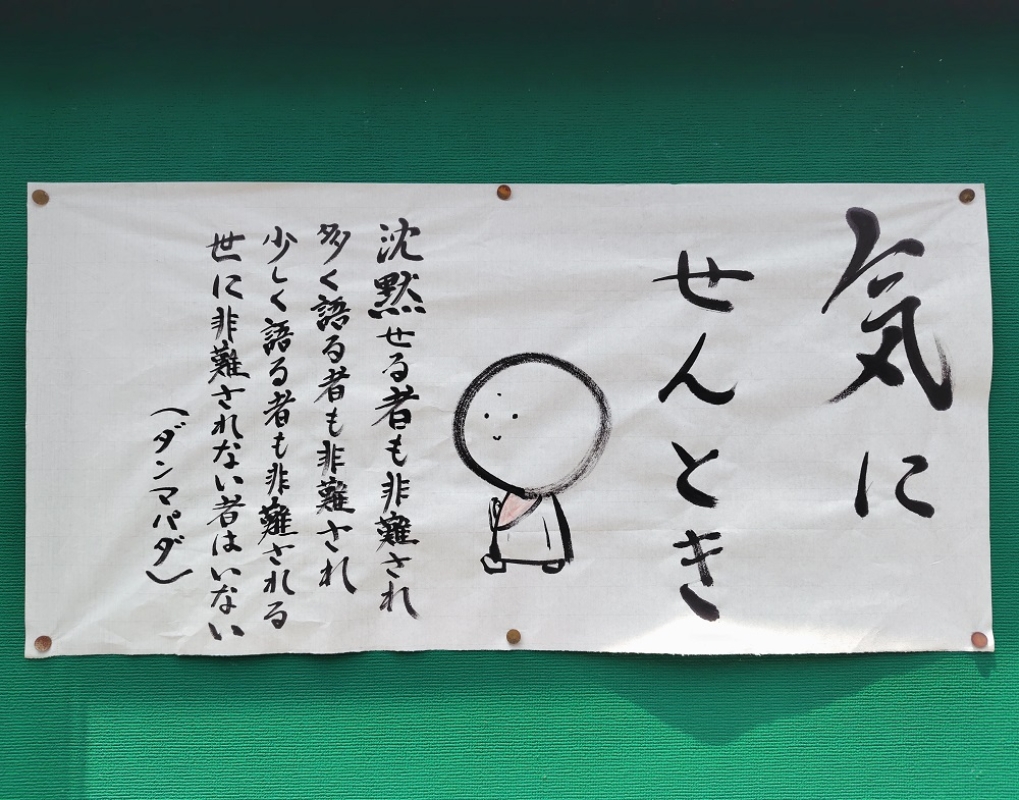 気に
せんとき
沈黙せる者も非難され
多く語る者も非難され
少しく語る者も非難される
世に非難されない者はいない
（ダンマパダ）